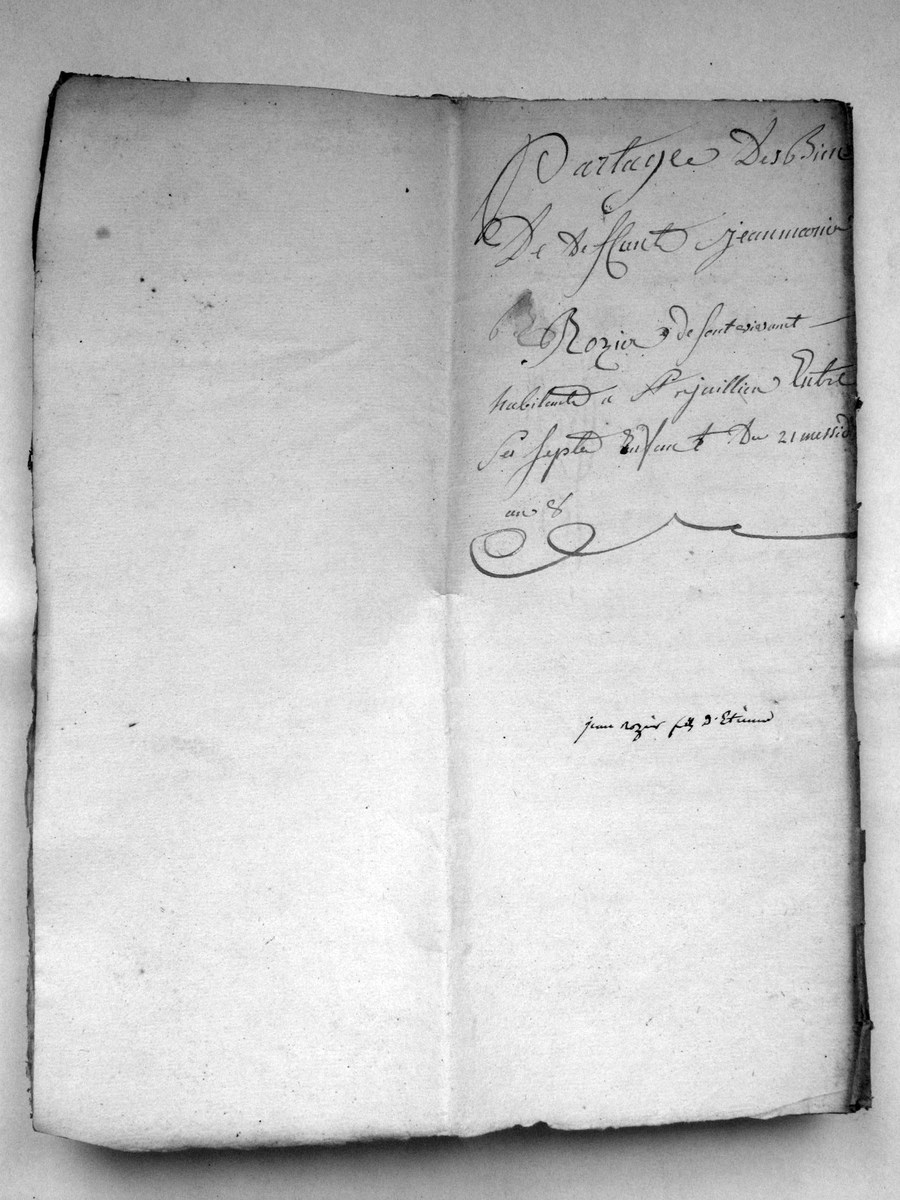 Partagee Des Bien
De deffunt jeanmarie
Rozier de sont vivant
habitant a St jullien Entre
Ses septe Enfant Du 21 messid
an 8
jean rozier fils d'Etienne